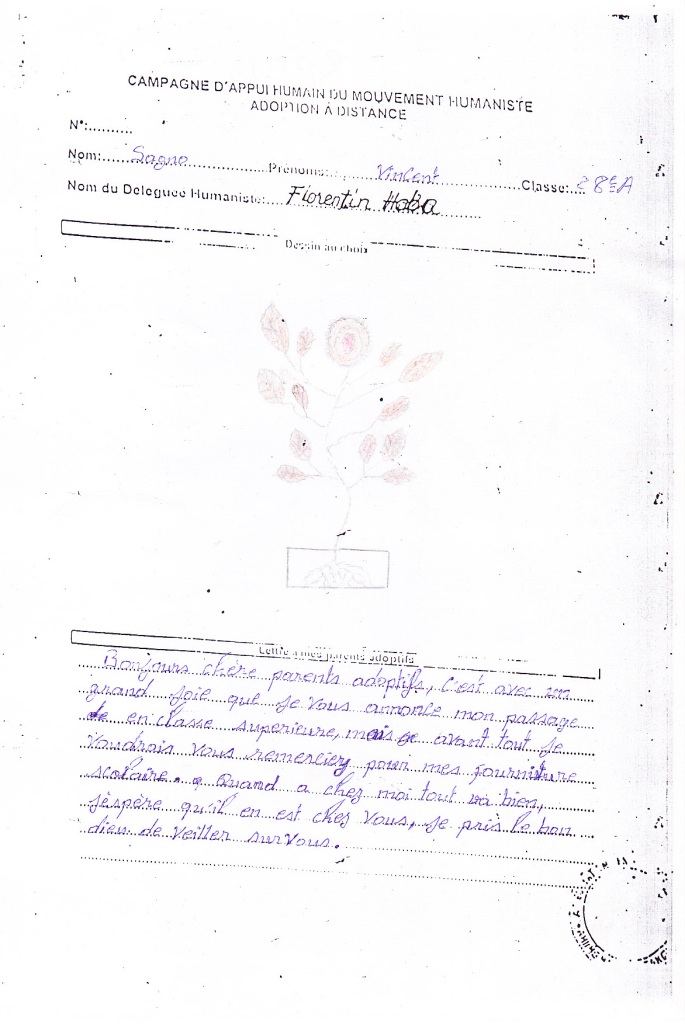 CAMPAGNE D'APPUI HUMAIN DU MOUVEMENT HUMANISTE
ADOPTION À DISTANCE
N°:..........
Nom: Sagno Prénoms: Vincent Classe: 8è A
Nom du Deleguée Humaniste: Florentin Haba
Dessin au choix
Lettre a mes parents adoptifs
Bonjours chère parents adoptifs, c'est avec un
grand joie que je vous annonce mon passage
en classe superieure, mais avant tout je
voudrais vous remercier pour mes fourniture
scolaire. Quand a chez moi tout va bien,
j'espère qu'il en est chez vous, je pris le bon
dieu de veiller sur vous.